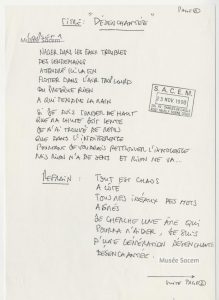 PAGE①
TITRE: "DÉSENCHANTÉE"
COUPLET 1
NAGER DANS LES EAUX TROUBLES
DES LENDEMAINS
ATTENDRE ICI LA FIN
FLOTTER DANS L'AIR TROP LOURD
DU PRESQUE RIEN
A QUI TENDRE LA MAIN
S.A.C.E.M.
SI JE DOIS TOMBER DE HAUT
QUE MA CHUTE SOIT LENTE
JE N'AI TROUVÉ DE REPOS
QUE DANS L'INDIFFÉRENCE
POURTANT JE VOUDRAIS RETROUVER L'INNOCENCE
MAIS RIEN N'A DE SENS ET RIEN NE VA...
REFRAIN:
TOUT EST CHAOS
A CÔTÉ
TOUS MES IDÉAUX DES MOTS
ABIMÉS
JE CHERCHE UNE ÂME QUI
POURRA M'AIDER, JE SUIS
D'UNE GÉNÉRATION DÉSENCHANTÉE
DÉSENCHANTÉE.
Musée Sacem
SUITE PAGE②